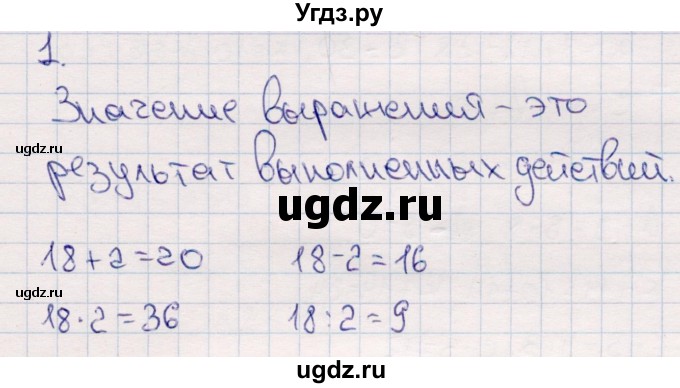 Угдз.ру
1.
Значение выражения - это
ugdz.ru
результат выполненных действий.
ugdz.ru
ugdz.ru
18+2=20 18-2=16
ugdz.ru
18·2=36 18:2=9
ugdz.ru